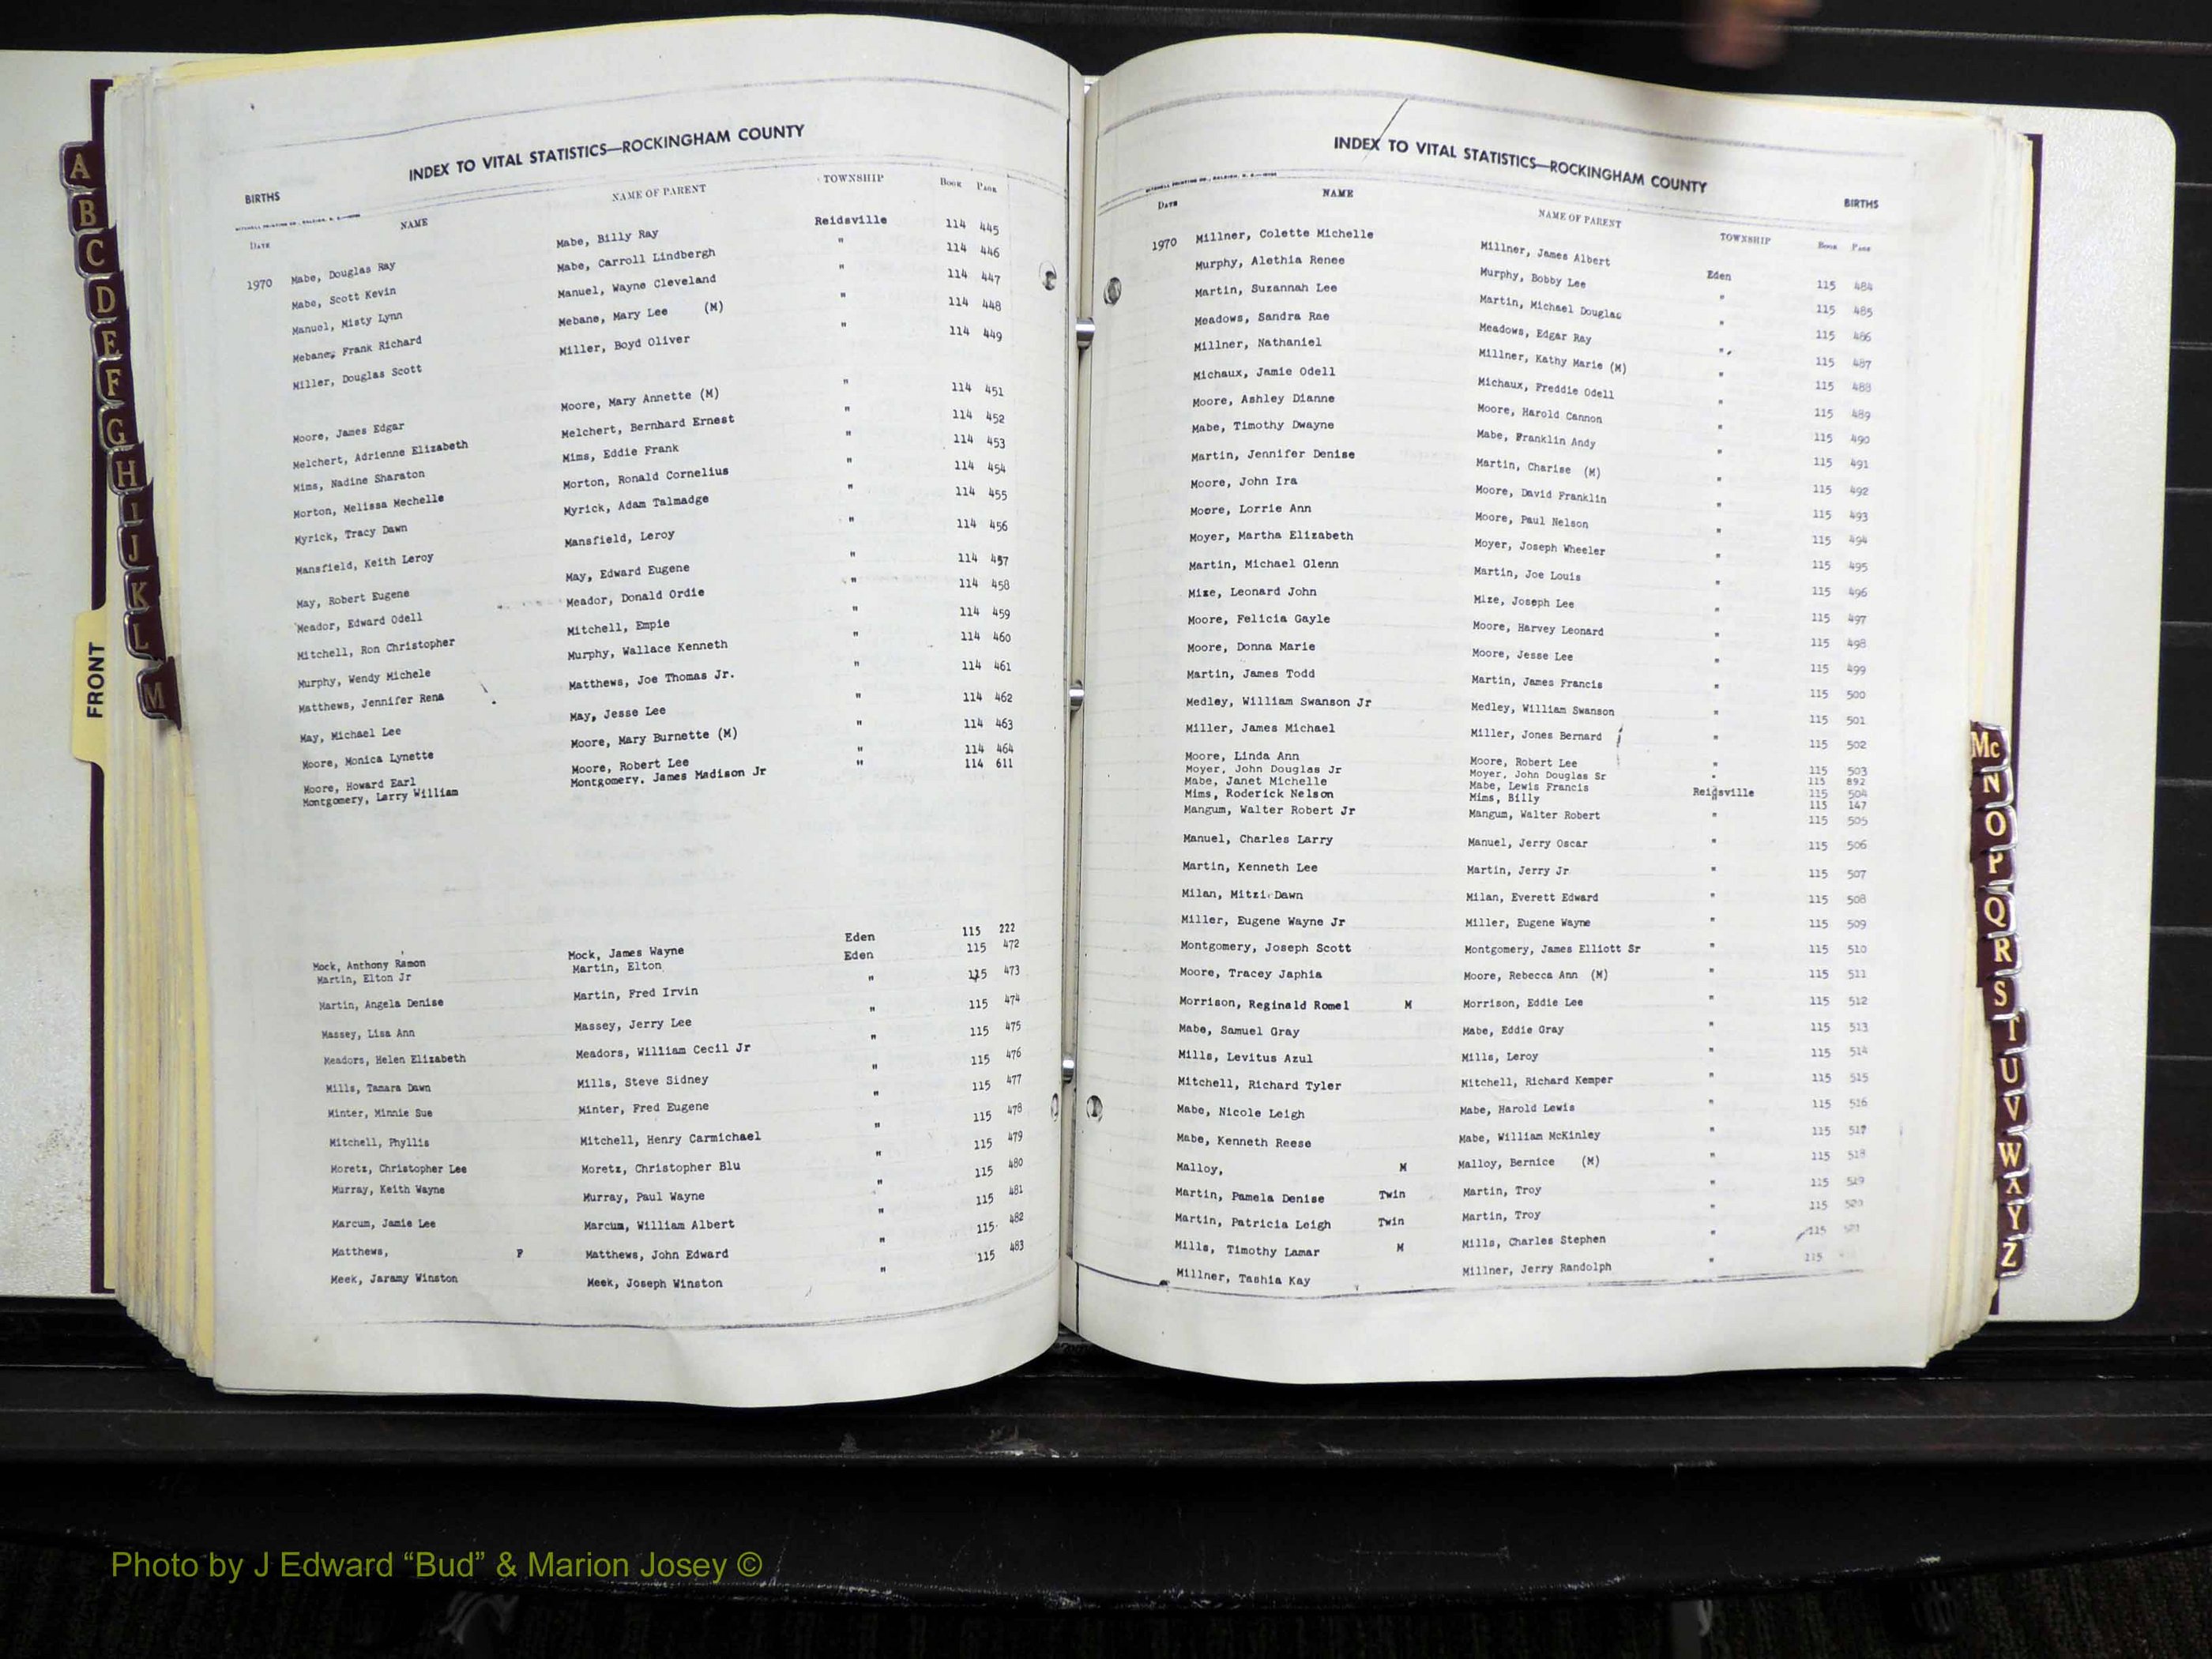 INDEX TO VITAL STATISTICS—ROCKINGHAM COUNTY
BIRTHS
DATE NAME NAME OF PARENT TOWNSHIP BOOK PAGE
1970 Mabe, Douglas Ray Mabe, Billy Ray Reidsville 114 445
Mabe, Scott Kevin Mabe, Carroll Lindbergh " 114 446
Manuel, Misty Lynn Manuel, Wayne Cleveland " 114 447
Mebane, Frank Richard Mebane, Mary Lee (M) " 114 448
Miller, Douglas Scott Miller, Boyd Oliver " 114 449
Moore, James Edgar Moore, Mary Annette (M) " 114 451
Melchert, Adrienne Elizabeth Melchert, Bernhard Ernest " 114 452
Mims, Nadine Sharaton Mims, Eddie Frank " 114 453
Morton, Melissa Mechelle Morton, Ronald Cornelius " 114 454
Myrick, Tracy Dawn Myrick, Adam Talmadge " 114 455
Mansfield, Keith Leroy Mansfield, Leroy " 114 456
May, Robert Eugene May, Edward Eugene " 114 457
Meador, Edward Odell Meador, Donald Ordie " 114 458
Mitchell, Ron Christopher Mitchell, Empie " 114 459
Murphy, Wendy Michele Murphy, Wallace Kenneth " 114 460
Matthews, Jennifer Rena Matthews, Joe Thomas Jr. " 114 461
May, Michael Lee May, Jesse Lee " 114 462
Moore, Monica Lynette Moore, Mary Burnette (M) " 114 463
Moore, Howard Earl Moore, Robert Lee " 114 464
Montgomery, Larry William Montgomery, James Madison Jr " 114 611
Mock, Anthony Ramon Mock, James Wayne Eden 115 222
Martin, Elton Jr Martin, Elton Eden 115 472
Martin, Angela Denise Martin, Fred Irvin " 115 473
Massey, Lisa Ann Massey, Jerry Lee " 115 474
Meadors, Helen Elizabeth Meadors, William Cecil Jr " 115 475
Mills, Tamara Dawn Mills, Steve Sidney " 115 476
Minter, Minnie Sue Minter, Fred Eugene " 115 477
Mitchell, Phyllis Mitchell, Henry Carmichael " 115 478
Moretz, Christopher Lee Moretz, Christopher Blu " 115 479
Murray, Keith Wayne Murray, Paul Wayne " 115 480
Marcum, Jamie Lee Marcum, William Albert " 115 481
Matthews, F Matthews, John Edward " 115 482
Meek, Jaramy Winston Meek, Joseph Winston " 115 483
INDEX TO VITAL STATISTICS—ROCKINGHAM COUNTY
BIRTHS
DATE NAME NAME OF PARENT TOWNSHIP BOOK PAGE
1970 Millner, Colette Michelle Millner, James Albert Eden 115 484
Murphy, Alethia Renee Murphy, Bobby Lee " 115 485
Martin, Suzannah Lee Martin, Michael Douglas " 115 486
Meadows, Sandra Rae Meadows, Edgar Ray " 115 487
Millner, Nathaniel Millner, Kathy Marie (M) " 115 488
Michaux, Jamie Odell Michaux, Freddie Odell " 115 489
Moore, Ashley Dianne Moore, Harold Cannon " 115 490
Mabe, Timothy Dwayne Mabe, Franklin Andy " 115 491
Martin, Jennifer Denise Martin, Charise (M) " 115 492
Moore, John Ira Moore, David Franklin " 115 493
Moore, Lorrie Ann Moore, Paul Nelson " 115 494
Moyer, Martha Elizabeth Moyer, Joseph Wheeler " 115 495
Martin, Michael Glenn Martin, Joe Louis " 115 496
Mize, Leonard John Mize, Joseph Lee " 115 497
Moore, Felicia Gayle Moore, Harvey Leonard " 115 498
Moore, Donna Marie Moore, Jesse Lee " 115 499
Martin, James Todd Martin, James Francis " 115 500
Medley, William Swanson Jr Medley, William Swanson " 115 501
Miller, James Michael Miller, Jones Bernard " 115 502
Moore, Linda Ann Moore, Robert Lee " 115 503
Moyer, John Douglas Jr Moyer, John Douglas Sr " 115 892
Mabe, Janet Michelle Mabe, Lewis Francis Reidsville 115 504
Mims, Roderick Nelson Mims, Billy " 113 147
Mangum, Walter Robert Jr Mangum, Walter Robert " 115 505
Manuel, Charles Larry Manuel, Jerry Oscar " 115 506
Martin, Kenneth Lee Martin, Jerry Jr " 115 507
Milan, Mitzi Dawn Milan, Everett Edward " 115 508
Miller, Eugene Wayne Jr Miller, Eugene Wayne " 115 509
Montgomery, Joseph Scott Montgomery, James Elliott Sr " 115 510
Moore, Tracey Japhia Moore, Rebecca Ann (M) " 115 511
Morrison, Reginald Romel M Morrison, Eddie Lee " 115 512
Mabe, Samuel Gray Mabe, Eddie Gray " 115 513
Mills, Levitus Azul Mills, Leroy " 115 514
Mitchell, Richard Tyler Mitchell, Richard Kemper " 115 515
Mabe, Nicole Leigh Mabe, Harold Lewis " 115 516
Mabe, Kenneth Reese Mabe, William McKinley " 115 517
Malloy, M Malloy, Bernice (M) " 115 518
Martin, Pamela Denise Twin Martin, Troy " 115 519
Martin, Patricia Leigh Twin Martin, Troy " 115 520
Mills, Timothy Lamar M Mills, Charles Stephen " 115 521
Millner, Tashia Kay Millner, Jerry Randolph " 115
A
B
C
D
E
F
G
H
I
J
K
L
M
FRONT
Mc
N
O
P
Q
R
S
T
U
V
W
X
Y
Z
Photo by J Edward “Bud” & Marion Josey ©